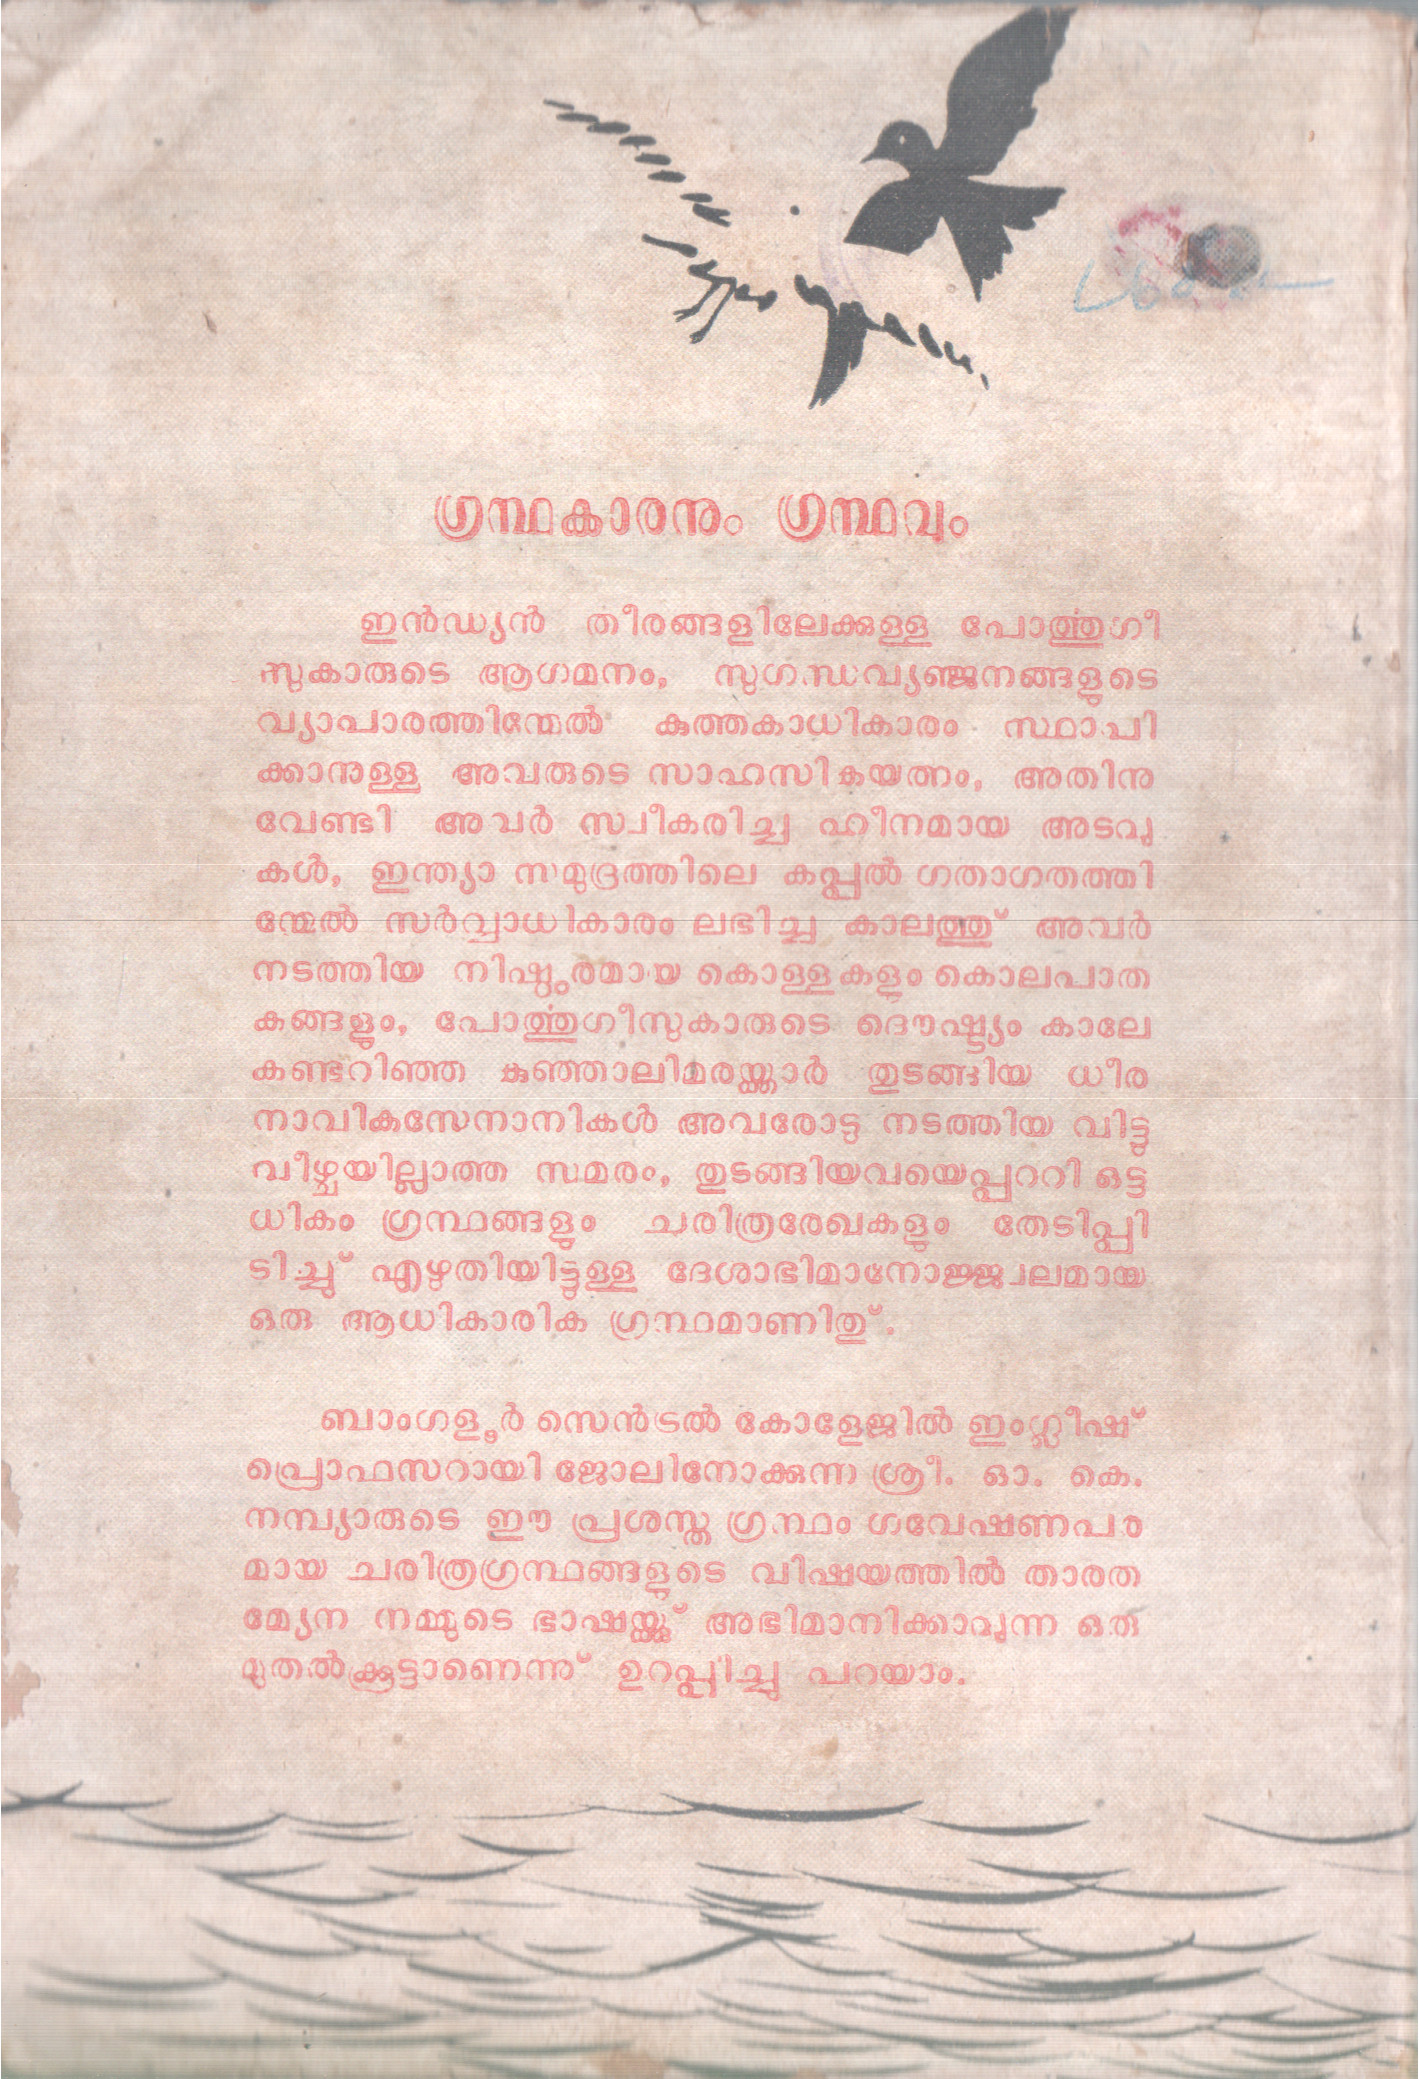 ഗ്രന്ഥകാരനും ഗ്രന്ഥവും
ഇൻഡ്യൻ തീരങ്ങളിലേക്കുള്ള പോർത്തുഗീ
സുകാരുടെ ആഗമനം, സുഗന്ധവ്യഞ്ജനങ്ങളുടെ
വ്യാപാരത്തിന്മേൽ കുത്തകാധികാരം സ്ഥാപി
ക്കാനുള്ള അവരുടെ സാഹസികയത്നം, അതിനു
വേണ്ടി അവർ സ്വീകരിച്ച ഹീനമായ അടവു
കൾ, ഇന്ത്യാ സമുദ്രത്തിലെ കപ്പൽ ഗതാഗതത്തി
ന്മേൽ സർവ്വാധികാരം ലഭിച്ച കാലത്തു് അവർ
നടത്തിയ നിഷ്ഠുരമായ കൊള്ളകളും കൊലപാത
കങ്ങളും, പോർത്തുഗീസുകാരുടെ ദൌഷ്ട്യം കാലേ
കണ്ടറിഞ്ഞ കുഞ്ഞാലിമരയ്ക്കാർ തുടങ്ങിയ ധീര
നാവികസേനാനികൾ അവരോടു നടത്തിയ വിട്ടു
വീഴ്ചയില്ലാത്ത സമരം, തുടങ്ങിയവയെപ്പററി ഒട്ട
ധികം ഗ്രന്ഥങ്ങളും ചരിത്രരേഖകളും തേടിപ്പി
ടിച്ചു് എഴുതിയിട്ടുള്ള ദേശാഭിമാനോജ്ജ്വലമായ
ഒരു ആധികാരിക ഗ്രന്ഥമാണിതു്.
ബാംഗളൂർ സെൻട്രൽ കോളേജിൽ ഇംഗ്ലീഷ്
പ്രൊഫസറായി ജോലിനോക്കുന്ന ശ്രീ. ഓ. കെ.
നമ്പ്യാരുടെ ഈ പ്രശസ്ത ഗ്രന്ഥം ഗവേഷണപര
മായ ചരിത്രഗ്രന്ഥങ്ങളുടെ വിഷയത്തിൽ താരത
മ്യേന നമ്മുടെ ഭാഷയ്ക്കു് അഭിമാനിക്കാവുന്ന ഒരു
മുതൽക്കൂട്ടാണെന്നു് ഉറപ്പിച്ചു പറയാം.